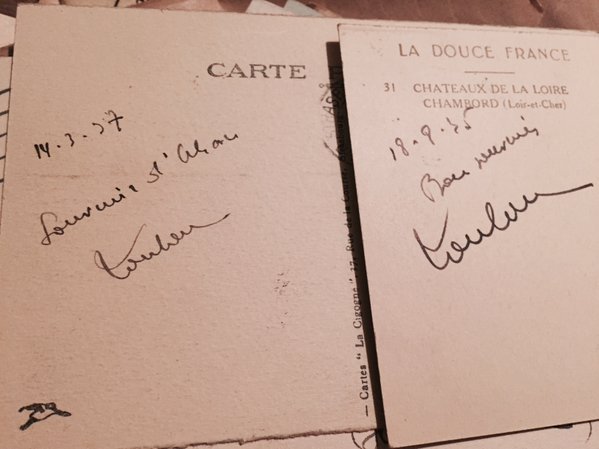 CARTE
14.3.37
Souvenir d'Alsace
— Cartes " La Cigogne " 37, Rue de la
LA DOUCE FRANCE
31 CHATEAUX DE LA LOIRE
CHAMBORD (Loir-et-Cher)
18-9-35
Bon souvenir